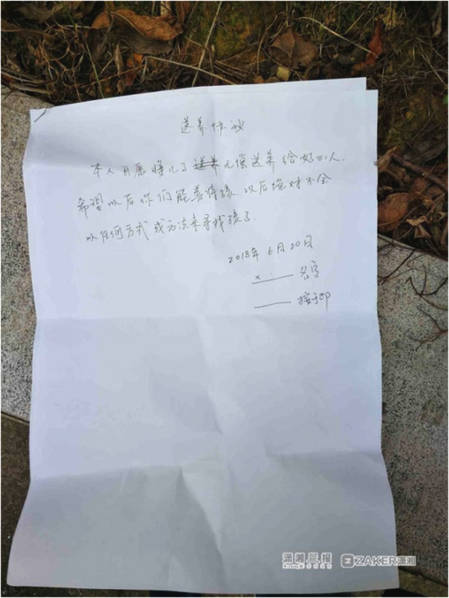 送养协议
本人自愿将儿子送养无偿送养给好心人.
希望以后你们能善待孩 以后绝对不会
以任何方式或方法来寻找孩子.
2018年6月20日
x. 签字
按手印
潇湘晨报
ZAKER潇湘